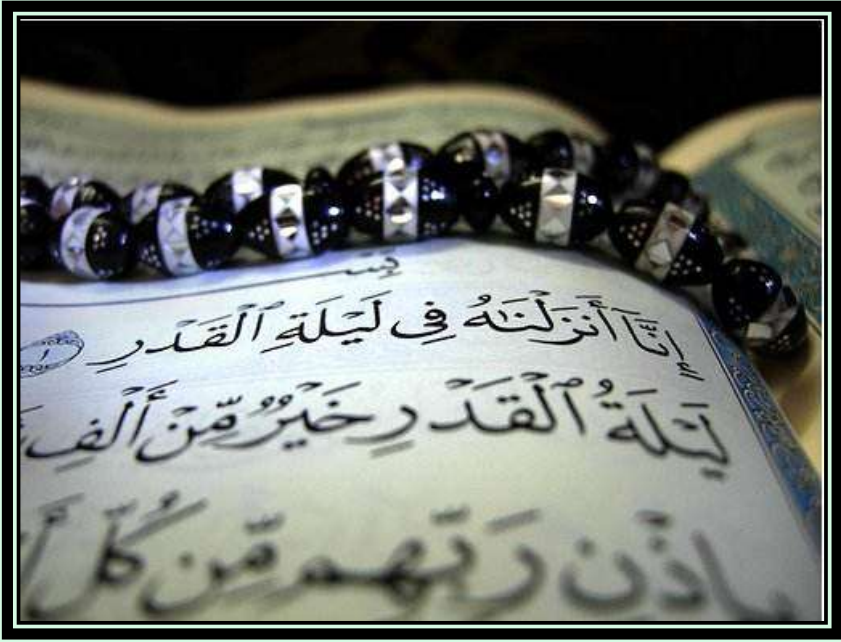 بِسْ
إِنَّآ أَنزَلْنَٰهُ فِى لَيْلَةِ ٱلْقَدْرِ ١
لَيْلَةُ ٱلْقَدْرِ خَيْرٌ مِّنْ أَلْفِ
بِإِذْنِ رَبِّهِم مِّن كُلِّ